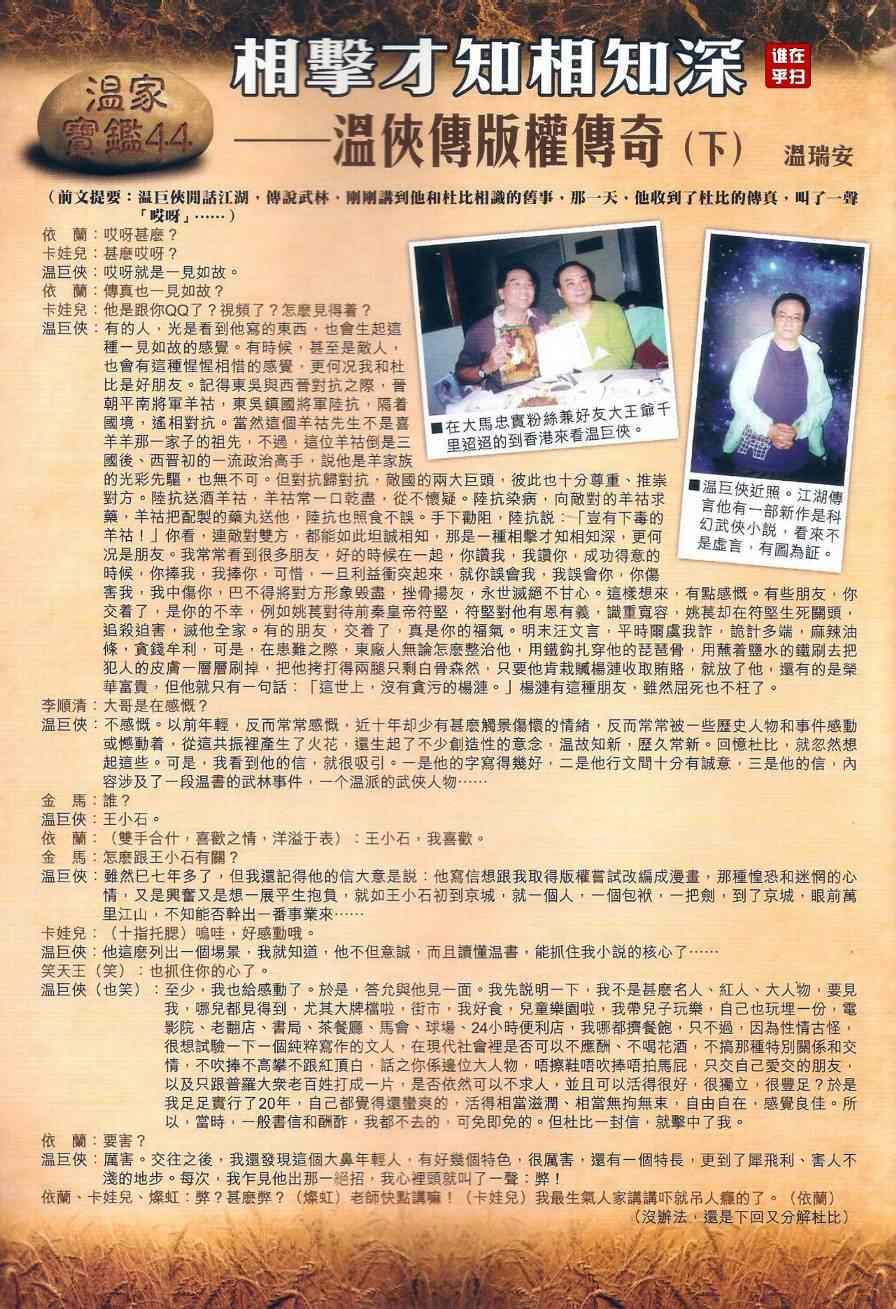 相擊才知相知深
誰在
乎扫
溫家
寶鑑44
——溫俠傳版權傳奇（下） 溫瑞安
（前文提要：温巨俠閒話江湖，傳說武林，剛剛講到他和杜比相識的舊事，那一天，他收到了杜比的傳真，叫了一聲
「哎呀」……）
依　蘭：哎呀甚麼？
卡娃兒：甚麼哎呀？
温巨俠：哎呀就是一見如故。
依　蘭：傳真也一見如故？
卡娃兒：他是跟你QQ了？視頻了？怎麼見得着？
温巨俠：有的人，光是看到他寫的東西，也會生起這
種一見如故的感覺。有時候，甚至是敵人，
也會有這種惺惺相惜的感覺，更何況我和杜
比是好朋友。記得東吳與西晉對抗之際，晉
朝平南將軍羊祜，東吳鎮國將軍陸抗，隔着
國境，遙相對抗。當然這個羊祜先生不是喜
羊羊那一家子的祖先，不過，這位羊祜倒是三
國後、西晉初的一流政治高手，說他是羊家族
的光彩先驅，也無不可。但對抗歸對抗，敵國的兩大巨頭，彼此也十分尊重、推崇
對方。陸抗送酒羊祜，羊祜常一口乾盡，從不懷疑。陸抗染病，向敵對的羊祜求
藥，羊祜把配製的藥丸送他，陸抗也照食不誤。手下勸阻，陸抗說：「豈有下毒的
羊祜！」你看，連敵對雙方，都能如此坦誠相知，那是一種相擊才知相知深，更何
況是朋友。我常常看到很多朋友，好的時候在一起，你讚我，我讚你，成功得意的
時候，你捧我，我捧你，可惜，一旦利益衝突起來，就你誤會我，我誤會你，你傷
害我，我中傷你，巴不得將對方形象毀盡，挫骨揚灰，永世滅絕不甘心。這樣想來，有點感慨。有些朋友，你
交着了，是你的不幸，例如姚萇對待前秦皇帝符堅，符堅對他有恩有義，識重寬容，姚萇却在符堅生死關頭，
追殺迫害，滅他全家。有的朋友，交着了，真是你的福氣。明末汪文言，平時爾虞我詐，詭計多端，麻辣油
條，貪錢牟利，可是，在患難之際，東廠人無論怎麼整治他，用鐵鈎扎穿他的琵琶骨，用蘸着鹽水的鐵刷去把
犯人的皮膚一層層刷掉，把他拷打得兩腿只剩白骨森然，只要他肯栽贓楊漣收取賄賂，就放了他，還有的是榮
華富貴，但他就只有一句話：「這世上，沒有貪污的楊漣。」楊漣有這種朋友，雖然屈死也不枉了。
■在大馬忠實粉絲兼好友大王爺千
里迢迢的到香港來看温巨俠。
■温巨俠近照。江湖傳
言他有一部新作是科
幻武俠小說，看來不
是虛言，有圖為証。
李順清：大哥是在感慨？
温巨俠：不感慨。以前年輕，反而常常感慨，近十年却少有甚麼觸景傷懷的情緒，反而常常被一些歷史人物和事件感動
或憾動着，從這共振裡產生了火花，還生起了不少創造性的意念，温故知新，歷久常新。回憶杜比，就忽然想
起這些。可是，我看到他的信，就很吸引。一是他的字寫得幾好，二是他行文間十分有誠意，三是他的信，內
容涉及了一段温書的武林事件，一个温派的武俠人物……
金　馬：誰？
温巨俠：王小石。
依　蘭：（雙手合什，喜歡之情，洋溢于表）：王小石，我喜歡。
金　馬：怎麼跟王小石有關？
温巨俠：雖然巳七年多了，但我還記得他的信大意是說：他寫信想跟我取得版權嘗試改編成漫畫，那種惶恐和迷惘的心
情，又是興奮又是想一展平生抱負，就如王小石初到京城，就一個人，一個包袱，一把劍，到了京城，眼前萬
里江山，不知能否幹出一番事業來……
卡娃兒：（十指托腮）嗚哇，好感動哦。
温巨俠：他這麼列出一個場景，我就知道，他不但意誠，而且讀懂温書，能抓住我小說的核心了……
笑天王（笑）：也抓住你的心了。
温巨俠（也笑）：至少，我也給感動了。於是，答允與他見一面。我先說明一下，我不是甚麼名人、紅人、大人物，要見
我，哪兒都見得到，尤其大牌檔啦，街市，我好食，兒童樂園啦，我帶兒子玩樂，自己也玩埋一份，電
影院、老翻店、書局、茶餐廳、馬會、球場、24小時便利店，我哪都擠餐飽，只不過，因為性情古怪，
很想試驗一下一個純粹寫作的文人，在現代社會裡是否可以不應酬、不喝花酒，不搞那種特別關係和交
情，不吹捧不高攀不跟紅頂白，話之你係邊位大人物，唔擦鞋唔吹捧唔拍馬屁，只交自己愛交的朋友，
以及只跟普羅大衆老百姓打成一片，是否依然可以不求人，並且可以活得很好，很獨立，很豐足？於是
我足足實行了20年，自己都覺得還蠻爽的，活得相當滋潤、相當無拘無束，自由自在，感覺良佳。所
以，當時，一般書信和酬酢，我都不去的，可免即免的。但杜比一封信，就擊中了我。
依　蘭：要害？
温巨俠：厲害。交往之後，我還發現這個大鼻年輕人，有好幾個特色，很厲害，還有一個特長，更到了犀飛利、害人不
淺的地步。每次，我乍見他出那一絕招，我心裡頭就叫了一聲：弊！
依蘭、卡娃兒、燦虹：弊？甚麼弊？（燦虹）老師快點講嘛！（卡娃兒）我最生氣人家講講吓就吊人癮的了。（依蘭）
（沒辦法，還是下回又分解杜比）